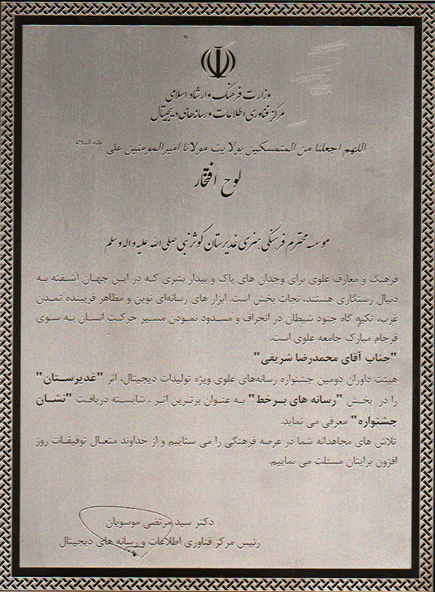 وزارت فرهنگ و ارشاد اسلامی
مرکز فناوری اطلاعات و رسانه‌های دیجیتال
اللهم اجعلنا من المتمسکین بولایت مولانا امیرالمومنین علی علیه السلام
لوح افتخار
موسسه محترم فرهنگی هنری غدیرستان کوثر نبی صلی الله علیه و اله وسلم
فرهنگ و معارف علوی برای وجدان های پاک و بیدار بشری که در این جهان آشفته به
دنبال رستگاری هستند، نجات بخش است. ابزار های رسانه‌ای نوین و مظاهر فریبنده تمدن
غرب، تکیه گاه جنود شیطان در انحراف و مسدود نمودن مسیر حرکت انسان به سوی
فرجام مبارک جامعه علوی است.
"جناب آقای محمدرضا شریفی"
هیئت داوران دومین جشنواره رسانه‌های علوی ویژه تولیدات دیجیتال، اثر "غدیرستان"
را در بخش "رسانه های برخط" به عنوان برترین اثر ، شایسته دریافت "نشان
جشنواره" معرفی می نماید.
تلاش های مجاهدانه شما در عرصه فرهنگی را می ستاییم و از خداوند متعال توفیقات روز
افزون برایتان مسئلت می نماییم.
دکتر سید مرتضی موسویان
رئیس مرکز فناوری اطلاعات و رسانه های دیجیتال